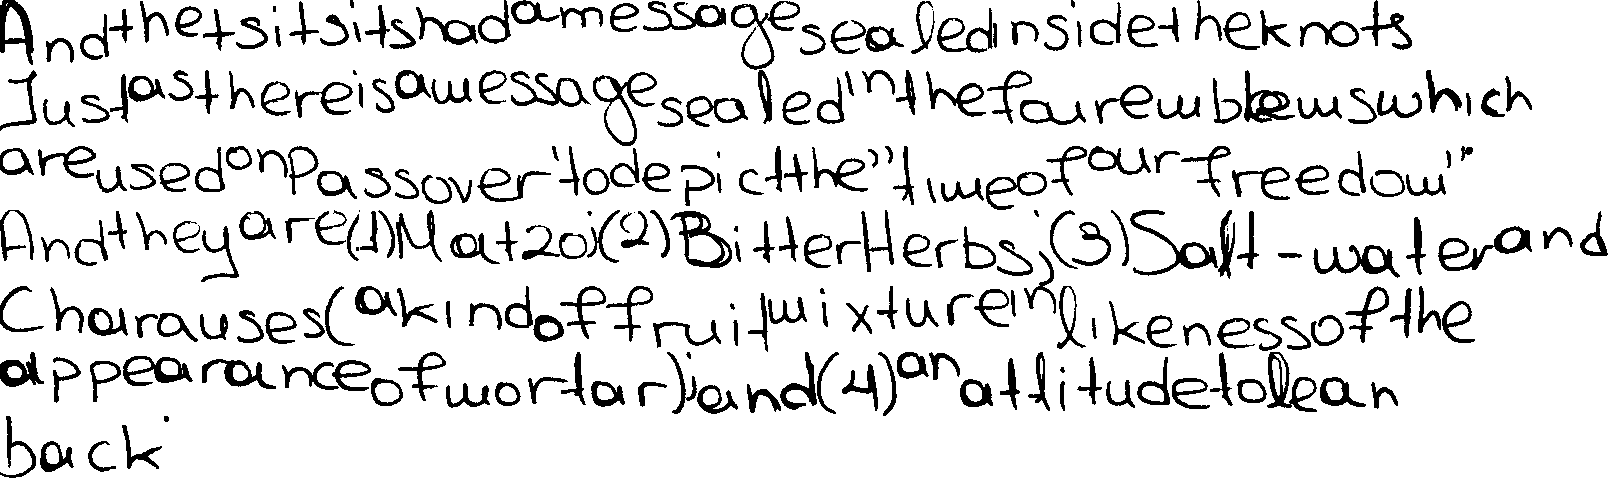 And the tsitsits had a message sealed inside the knots
Just as there is a message sealed in the four emblems which
are used on Passover "to depict the "time of our freedom"
And they are (1) Matzo; (2) Bitter Herbs; (3) Salt-water and
Charauses (a kind of fruit mixture in likeness of the
appearance of mortar); and (4) an attitude to lean
back.